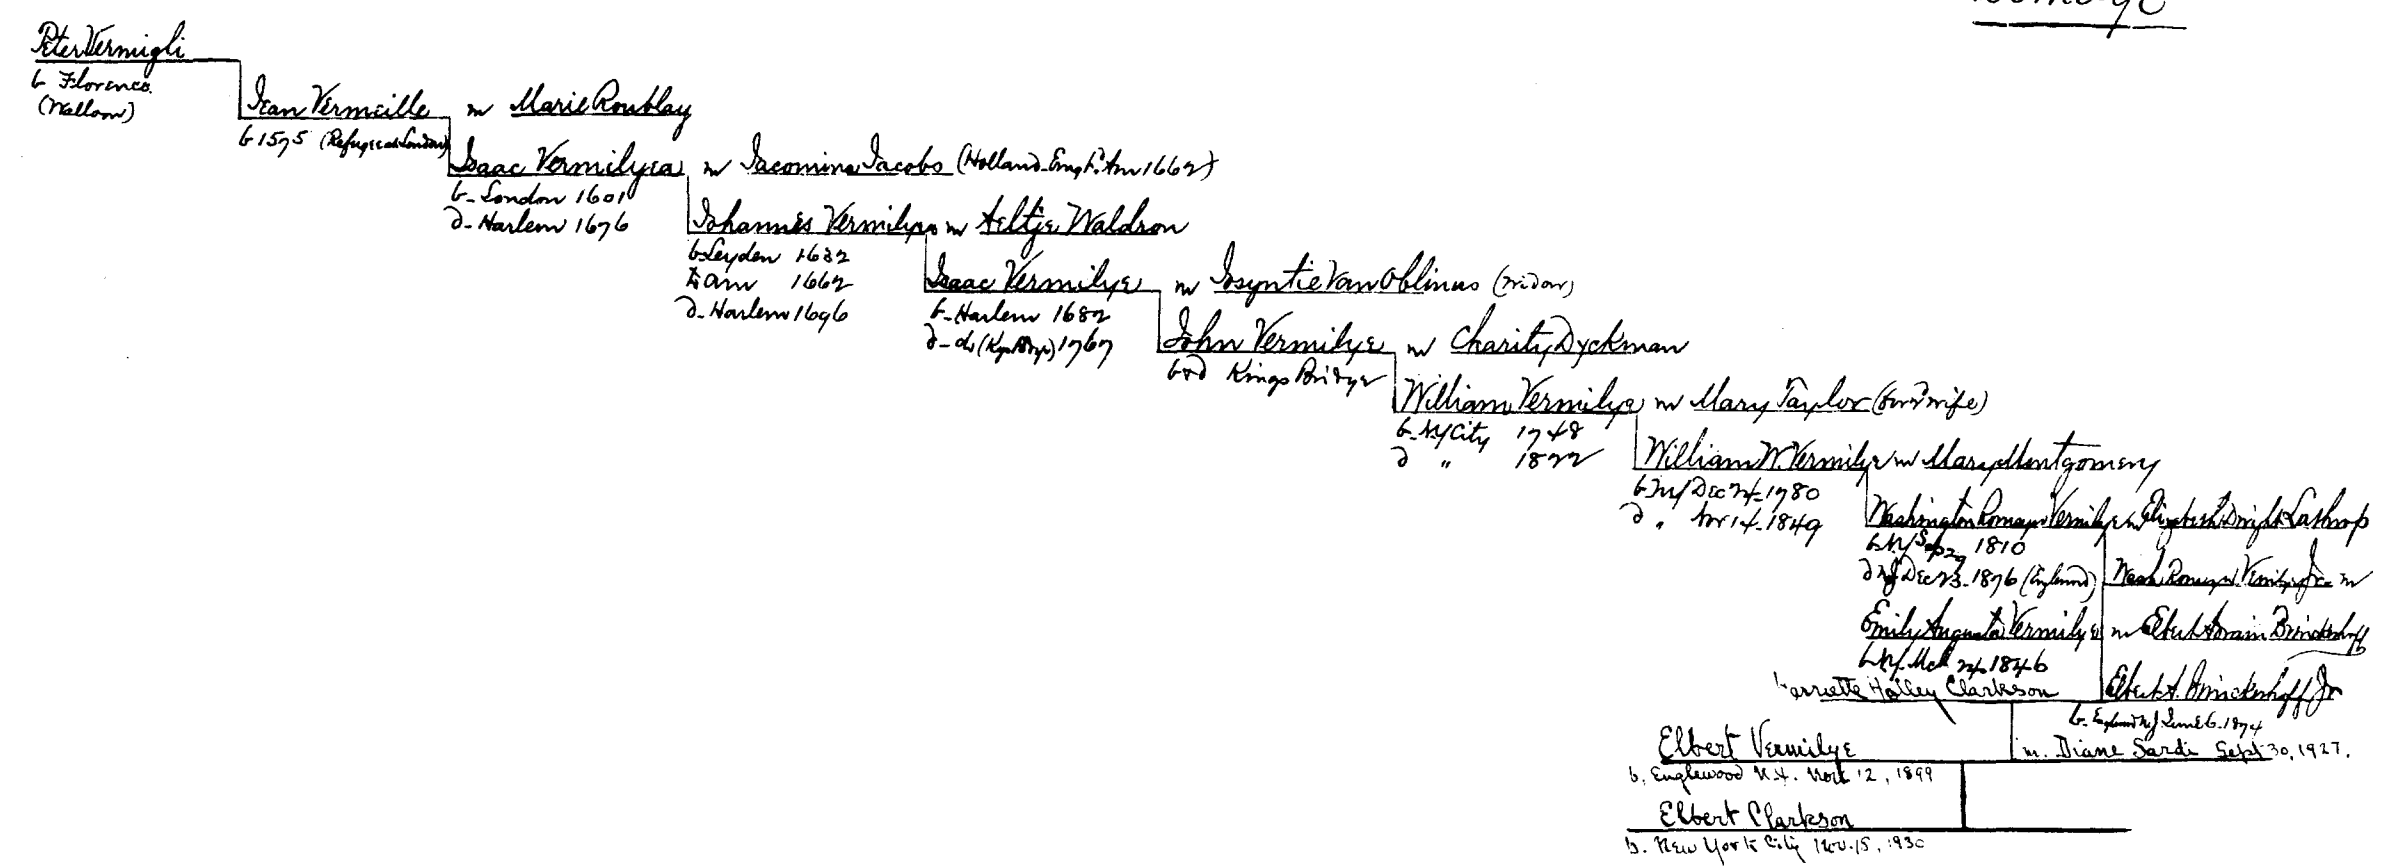 Peter Vermigli
b Florence
(Walloon)
Jean Vermeille m Marie Roublay
b 1575 (Refugee at London)
Isaac Vermilyea m Jacomina Jacobs (Holland-Emg. to Am 1662)
b- London 1601
d- Harlem 1676
Johannes Vermilye m Aeltje Waldron
b Leyden 1632
to Am 1662
d- Harlem 1696
Isaac Vermilye m Josyntie Van Oblinus (widow)
b- Harlem 1682
d- do (Kgs Brge) 1767
John Vermilye m Charity Dyckman
b & d Kings Bridge
William Vermilye m Mary Taylor (wife)
b- NY City 1748
d " 1822
William W. Vermilye m Mary Montgomery
b NY Dec 24-1780
d " 14-1849
Washington Romeyn Vermilye m Elizabeth Dwight Lathrop
b NY Sep 29 1810
d NJ Dec 23-1876 (Englewood)
Wash Romeyn Vermilye Jr m
Emily Augusta Vermilye m Elbert Brinckerhoff
b NY Mch 24 1846
Harriette Holley Clarkson Elbert A. Brinckerhoff Jr
b- Englewood NJ June 6-1874
Elbert Vermilye m. Diane Sardi Sept 30, 1927.
b. Englewood N.J. Nov. 12, 1899
Elbert Clarkson
b. New York City Nov. 15, 1930